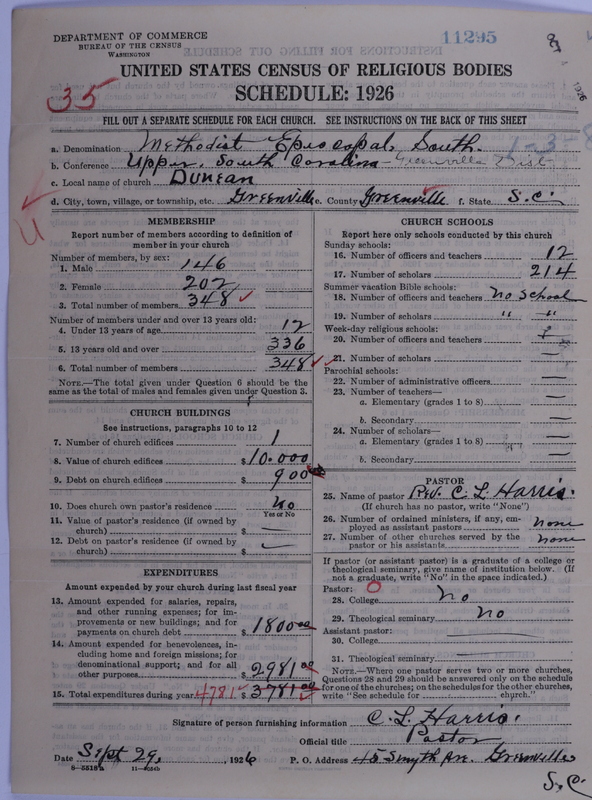 DEPARTMENT OF COMMERCE
BUREAU OF THE CENSUS
WASHINGTON
11295
1926
UNITED STATES CENSUS OF RELIGIOUS BODIES
SCHEDULE: 1926
35
FILL OUT A SEPARATE SCHEDULE FOR EACH CHURCH. SEE INSTRUCTIONS ON THE BACK OF THIS SHEET
a. Denomination Methodist Episcopal, South.
1-3-8
b. Conference Upper, South Carolina - Greenville Dist
c. Local name of church Duncan
d. City, town, village, or township, etc. Greenville e. County Greenville f. State S.C.
MEMBERSHIP
Report number of members according to definition of
member in your church
Number of members, by sex:
1. Male 146
2. Female 202
3. Total number of members 348
Number of members under and over 13 years old:
4. Under 13 years of age 12
5. 13 years old and over 336
6. Total number of members 348
NOTE.—The total given under Question 6 should be the
same as the total of males and females given under Question 3.
CHURCH BUILDINGS
See instructions, paragraphs 10 to 12
7. Number of church edifices 1
8. Value of church edifices $10.000
9. Debt on church edifices $900
10. Does church own pastor's residence No
Yes or No
11. Value of pastor's residence (if owned by
church) $ —
12. Debt on pastor's residence (if owned by
church) $ —
EXPENDITURES
Amount expended by your church during last fiscal year
13. Amount expended for salaries, repairs,
and other running expenses; for im-
provements or new buildings; and for
payments on church debt $1800.00
14. Amount expended for benevolences, in-
cluding home and foreign missions; for
denominational support; and for all
other purposes $2981.00
15. Total expenditures during year 4781 $3781.00
CHURCH SCHOOLS
Report here only schools conducted by this church
Sunday schools:
16. Number of officers and teachers 12
17. Number of scholars 214
Summer vacation Bible schools:
18. Number of officers and teachers No School
19. Number of scholars " "
Week-day religious schools:
20. Number of officers and teachers
21. Number of scholars —
Parochial schools:
22. Number of administrative officers —
23. Number of teachers—
a. Elementary (grades 1 to 8) —
b. Secondary —
24. Number of scholars—
a. Elementary (grades 1 to 8) —
b. Secondary —
PASTOR
25. Name of pastor Rev. C. L. Harris.
(If church has no pastor, write "None")
26. Number of ordained ministers, if any, em-
ployed as assistant pastors none
27. Number of other churches served by the
pastor or his assistants none
If pastor (or assistant pastor) is a graduate of a college or
theological seminary, give name of institution below. (If
not a graduate, write "No" in the space indicated.)
Pastor: O
28. College No
29. Theological seminary No
Assistant pastor:
30. College —
31. Theological seminary —
NOTE.—Where one pastor serves two or more churches,
Questions 28 and 29 should be answered only on the schedule
for one of the churches; on the schedules for the other churches,
write "See schedule for church."
Signature of person furnishing information C. L. Harris.
Official title Pastor
Date Sept 29, 1926 P. O. Address 45 Smyth Ave. Greenville
S.C.